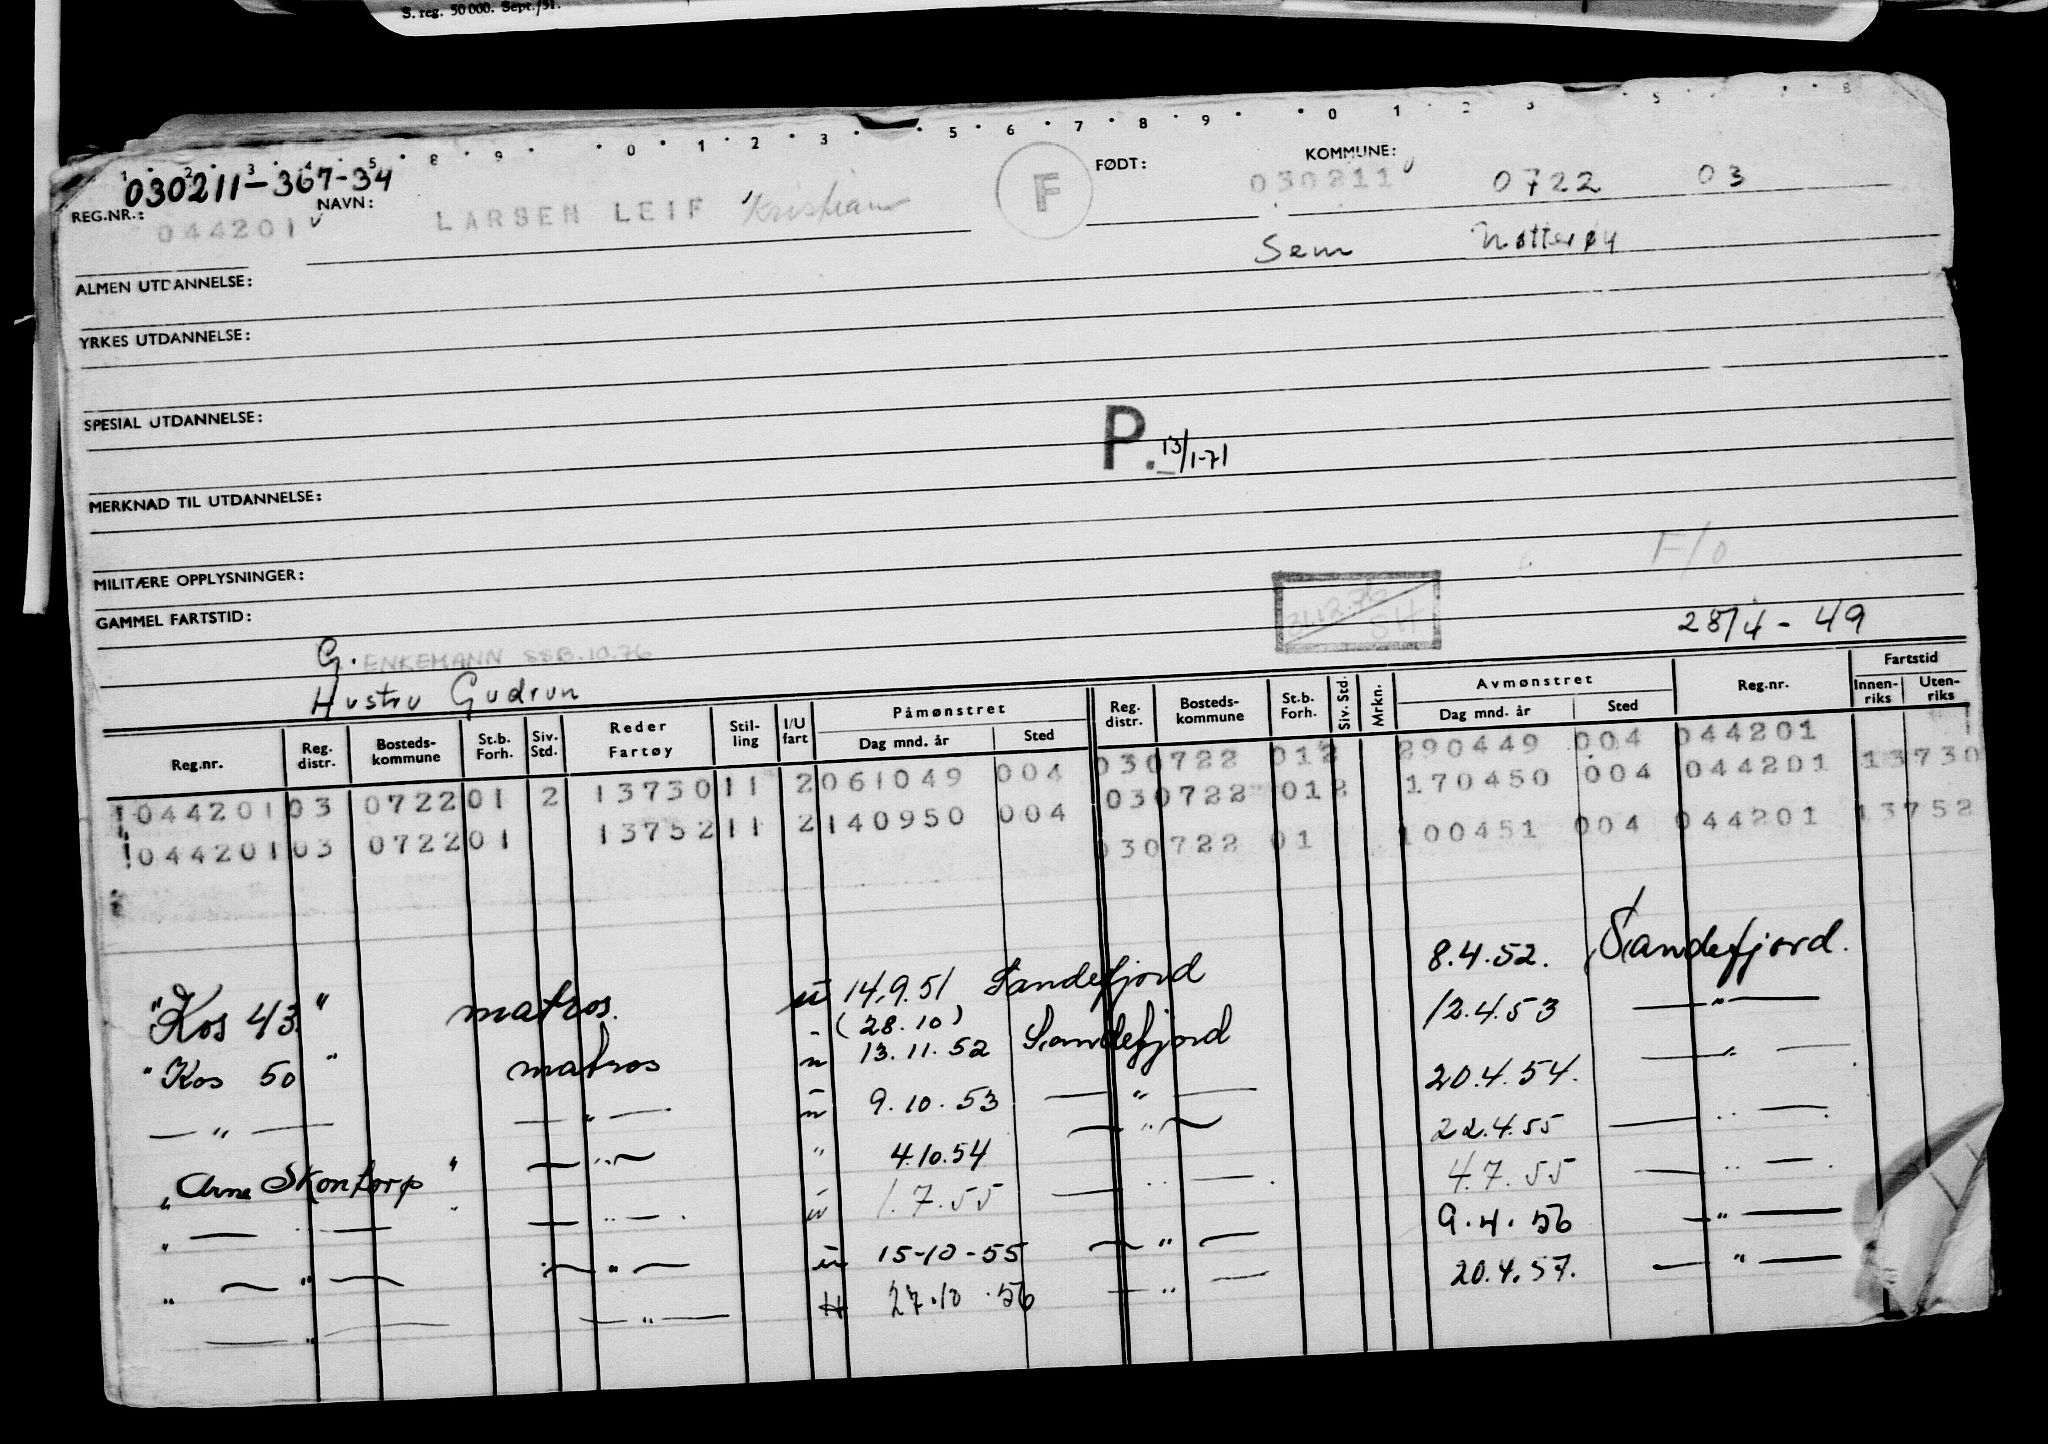 S. reg. 50 000. Sept./51.
0 1 2 3 5 6 7 8 9 0 1 2 3 5 8
030211-367-34
REG.NR.: 044201 NAVN: LARSEN LEIF Kristian F FØDT: 030211 KOMMUNE: 0722 03
Sem Nøtterøy
ALMEN UTDANNELSE:
YRKES UTDANNELSE:
SPESIAL UTDANNELSE:
P. 13/1-71
MERKNAD TIL UTDANNELSE:
F/0
MILITÆRE OPPLYSNINGER:
GAMMEL FARTSTID:
28/4 - 49
G. ENKEMANN SSB.10.76
Hustru Gudrun
Reg.nr. Reg. distr. Bosteds-kommune St.b. Forh. Siv. Std. Reder Fartøy Stil-ling I/U fart Påmønstret Dag mnd. år Sted Reg. distr. Bosteds-kommune St.b. Forh. Siv. Std. Mrkn. Avmønstret Dag mnd. år Sted Reg.nr. Fartstid Innen-riks Uten-riks
030722 012 290449 004 044201
044201 03 0722 01 2 13730 11 2 061049 004 030722 012 170450 004 044201 13730
044201 03 0722 01 13752 11 2 140950 004 030722 01 100451 004 044201 13752
"Kos 43" matros. u 14.9.51 Sandefjord 8.4.52. Sandefjord.
(28.10)
"Kos 50" matros u 13.11.52 Sandefjord 12.4.53 — " —
— " — — " — u 9.10.53 — " — 20.4.54. — " —
"Arne Skontorp" — " — " 4.10.54 — " — 22.4.55 — " —
" — " — " — " — u 1.7.55 — " — 4.7.55 — " —
" — " — — " — u 15-10-55 — " — 9.4.56 — " —
— " — — " — 27.10.56 — " — 20.4.57. — " —